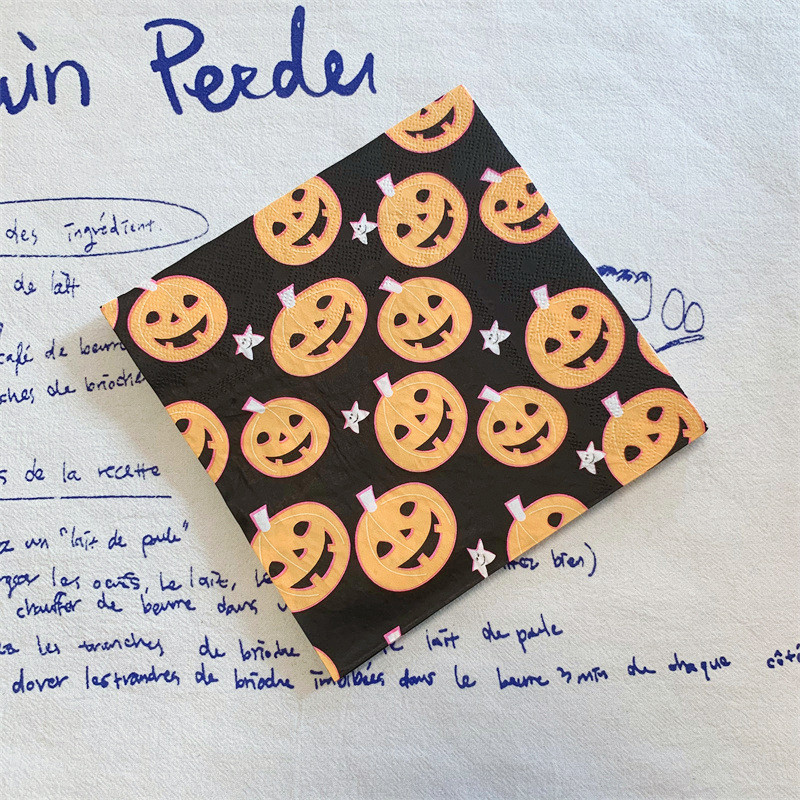 ain Perdu
des ingrédient.
de lait
café de beurre
ches de brioche
s de la recette
ez un "lait de poule"
les oeufs, le lait, le
chauffer de beurre dans u
ez bien)
ez les tranches de brioche le lait de poule
dorer les tranches de brioche imbibées dans le beurre 3 min de chaque côté